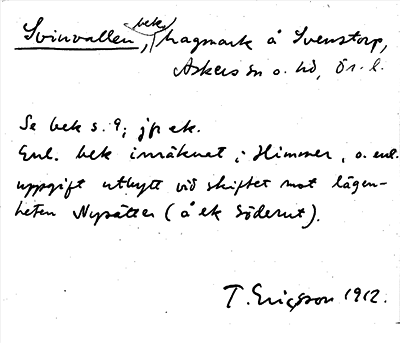 Svinvallen, bek, hagmark å Svenstorp,
Askers sn o. hd, Ör. l.
Se bek s. 9; jfr ek.
Enl. bek inräknat i Himmer, o. enl.
uppgift utbytt vid skiftet mot lägen-
heten Nysätter (å ek Söderut).
T. Ericsson 1912.